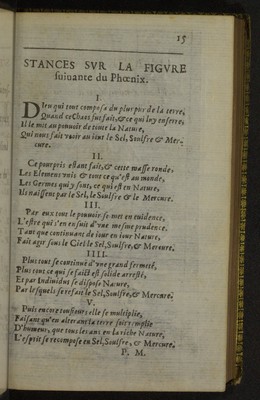 15
STANCES SVR LA FIGVRE
suiuante du Phœnix.
I.
Dieu qui tout composa du plus pur de la terre,
Quand ce Chaos fut fait, & ce qui le y enserre,
Il le mit au pouuoir de toute la Nature,
Qui nous fait voir au iour le Sel, Soulfre & Mer-
cure.
II.
Ce pourpris estant fait, & cette masse ronde,
Les Elemens vnis, & tout ce qu'est au monde,
Les Germes qui y sont, ce qui est en Nature,
Ils naissent par le Sel, le Soulfre & le Mercure.
III.
Par eux tout le pouuoir se met en euidence,
L'estre qui s'en ensuit d'vne mesme prudence.
Tant que continuant de iour en iour Nature,
Fait agir sous le Ciel le Sel, Soulfre, & Mercure.
IIII.
Plus tout se continuë d'vne grand fermeté,
Plus tout ce qui se faict est solide arresté,
Et par Indiuidus se dispose Nature,
Par lesquels se refait le Sel, Soulfre, & Mercure.
V.
Puis encore tousiours elle se multiplie,
Faisant qu'en alterant la terre soit remplie
D'humeur, que tous les ans en la riche Nature,
L'esprit se recompose en Sel, Soulfre, & Mercure.
P. M.